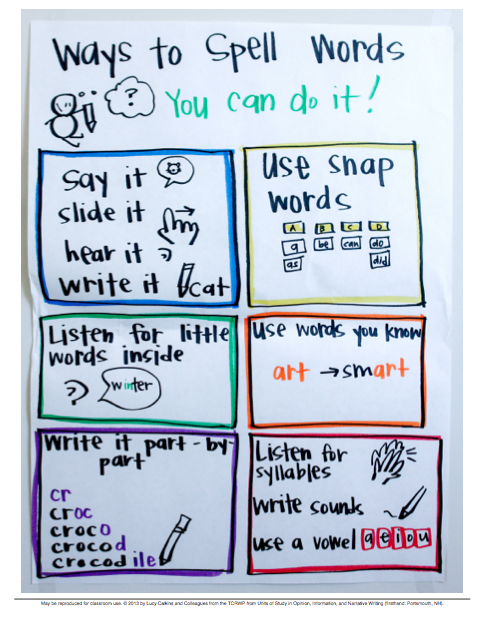 Ways to Spell Words
?
You can do it!
say it
slide it
hear it
write it cat
Use snap
words
A B C D
a be can do
as did
Listen for little
words inside
winter
Use words you know
art → smart
Write it part-by-
part
cr
croc
croco
crocod
crocodile
Listen for
syllables
write sounds
use a vowel a e i o u
May be reproduced for classroom use. © 2013 by Lucy Calkins and Colleagues from the TCRWP from Units of Study in Opinion, Information, and Narrative Writing (firsthand: Portsmouth, NH).